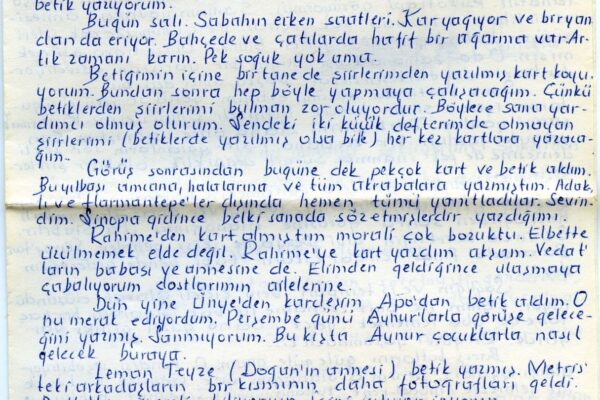 betik yazıyorum.
Bugün salı. Sabahın erken saatleri. Kar yağıyor ve bir yan
dan da eriyor. Bahçede ve çatılarda hafif bir ağarma var. Ar-
tık zamanı karın. Pek soğuk yok ama.
Betiğimin içine bir tane de şiirlerimden yazılmış kart koyu
yorum. Bundan sonra hep böyle yapmaya çalışacağım. Çünkü
betiklerden şiirlerimi bulman zor oluyordur. Böylece sana yar-
dımcı olmuş olurum. Sendeki iki küçük defterimde olmayan
şiirlerimi (betiklerde yazılmış olsa bile) her kez kartlara yazaca
ğım.
Görüş sonrasından bugüne dek pekçok kart ve betik aldım.
Bu yılbaşı amcana, halalarına ve tüm akrabalara yazmıştım. Adak,
lı ve Harmantepe'ler dışında hemen tümü yanıtladılar. Sevin
dim. Sinop'a gidince belki sanada söz etmişlerdir yazdığımı.
Rahime'den kart almıştım morali çok bozuktu. Elbette
üzülmemek elde değil. Rahime'ye kart yazdım akşam. Vedat'
ların babası ve annesine de. Elimden geldiğince ulaşmaya
çabalıyorum dostlarımın ailelerine.
Dün yine Ünye'den kardeşim Apo'dan betik aldım. O
nu merak ediyordum. Perşembe günü Aynur'larla görüşe gelece-
ğini yazmış. Sanmıyorum. Bu kışta Aynur çocuklarla nasıl
gelecek buraya.
Leman Teyze (Doğan'ın annesi) betik yazmış. Metris'
teki arkadaşların bir kısmının daha fotoğrafları geldi.